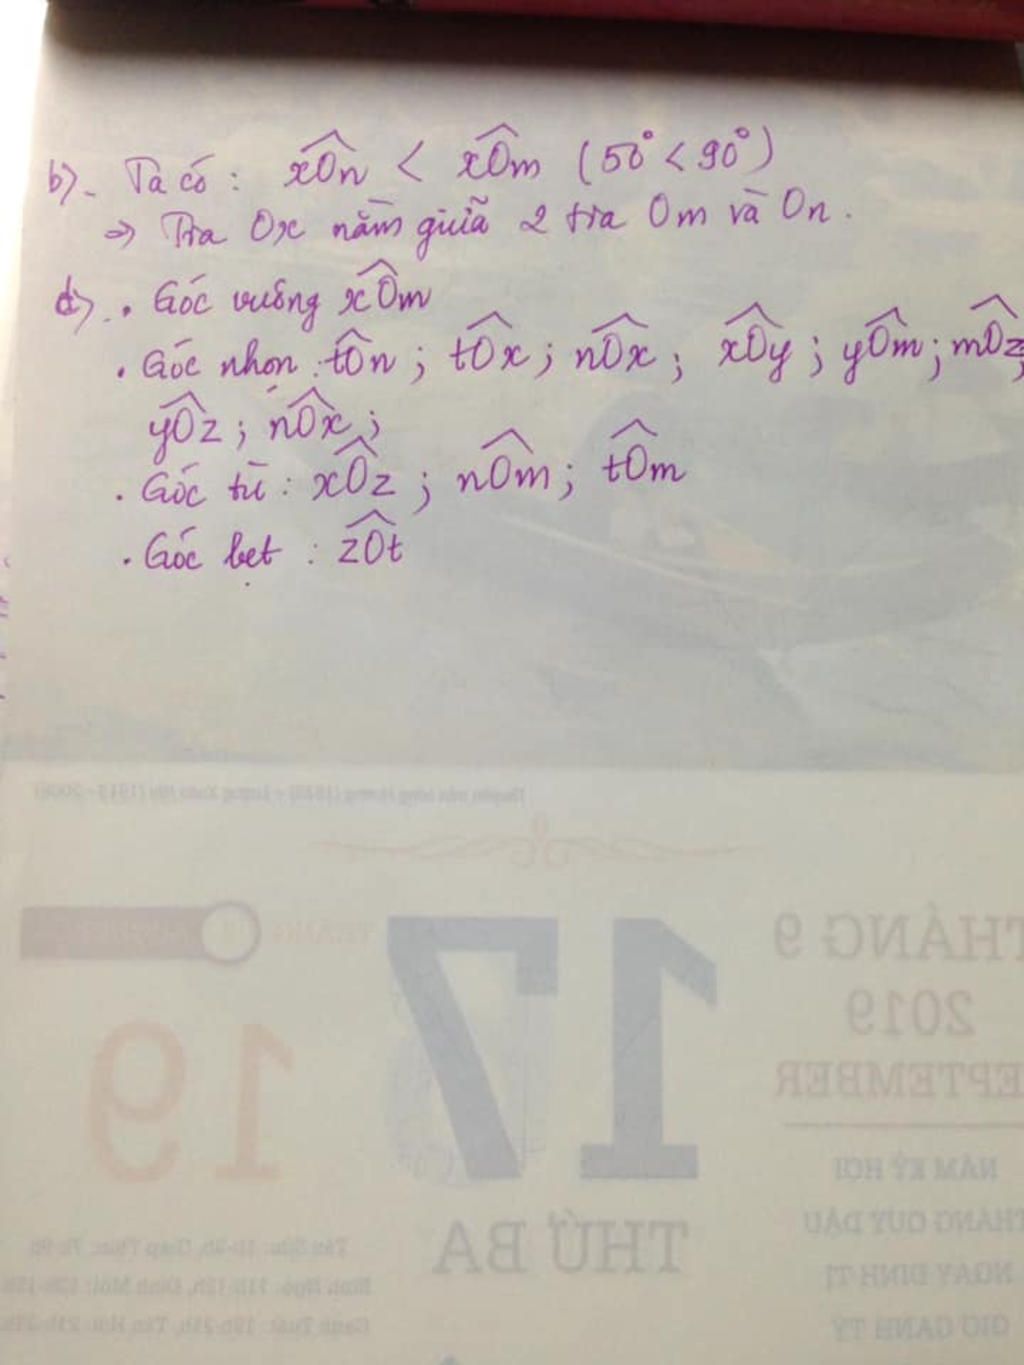 b) - Ta có: xOn < xOm (50° < 90°)
⇒ Tia Ox nằm giữa 2 tia Om và On.
d) . Góc vuông xOm
. Góc nhọn: tOn; tOx; nOx; xOy; yOm; mOz;
yOz; nOx;
. Góc tù: xOz; nOm; tOm
. Góc bẹt: zOt
THÁNG
THÁNG 9
17
2019
19
SEPTEMBER
NĂM KỶ HỢI
THÁNG QUÝ DẬU
THỨ BA
NGÀY ĐINH TỊ
GIỜ CANH TÝ